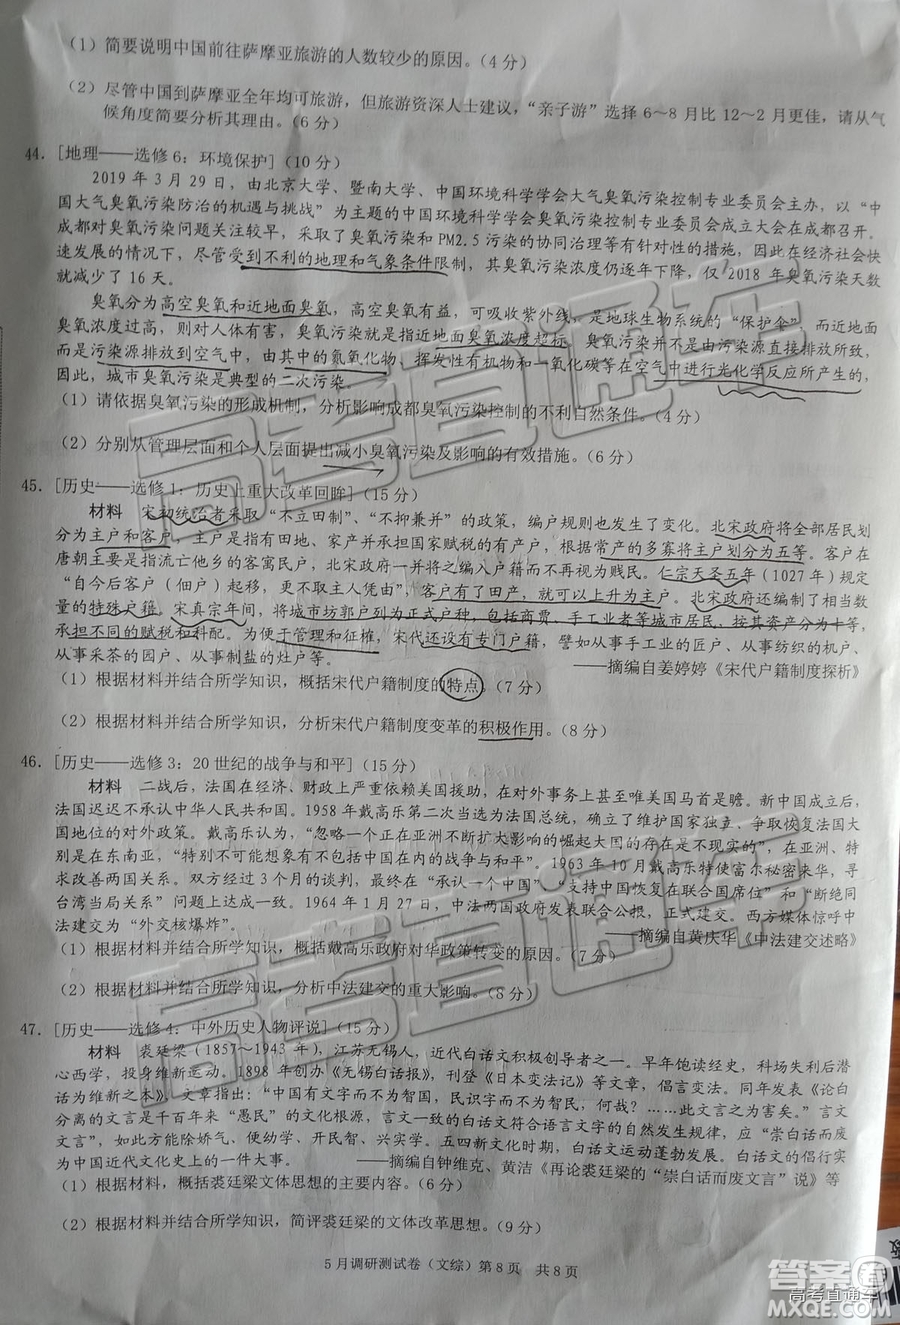 （1）简要说明中国前往萨摩亚旅游的人数较少的原因。（4 分）
（2）尽管中国到萨摩亚全年均可旅游，但旅游资深人士建议，“亲子游”选择 6～8 月比 12～2 月更佳，请从气
候角度简要分析其理由。（6 分）
44. [地理——选修 6：环境保护]（10 分）
2019 年 3 月 29 日，由北京大学、暨南大学、中国环境科学学会大气臭氧污染控制专业委员会主办，以“中
国大气臭氧污染防治的机遇与挑战”为主题的中国环境科学学会臭氧污染控制专业委员会成立大会在成都召开。
成都对臭氧污染问题关注较早，采取了臭氧污染和 PM2.5 污染的协同治理等有针对性的措施，因此在经济社会快
速发展的情况下，尽管受到不利的地理和气象条件限制，其臭氧污染浓度仍逐年下降，仅 2018 年臭氧污染天数
就减少了 16 天。
臭氧分为高空臭氧和近地面臭氧，高空臭氧有益，可吸收紫外线，是地球生物系统的“保护伞”，而近地面
臭氧浓度过高，则对人体有害，臭氧污染就是指近地面臭氧浓度超标。臭氧污染并不是由污染源直接排放所致，
而是污染源排放到空气中，由其中的氮氧化物、挥发性有机物和一氧化碳等在空气中进行光化学反应所产生的，
因此，城市臭氧污染是典型的二次污染。
（1）请依据臭氧污染的形成机制，分析影响成都臭氧污染控制的不利自然条件。（4 分）
（2）分别从管理层面和个人层面提出减小臭氧污染及影响的有效措施。（6 分）
45. [历史——选修 1：历史上重大改革回眸]（15 分）
材料 宋初统治者采取“不立田制”、“不抑兼并”的政策，编户规则也发生了变化。北宋政府将全部居民划
分为主户和客户，主户是指有田地、家产并承担国家赋税的有产户，根据常产的多寡将主户划分为五等。客户在
唐朝主要是指流亡他乡的客寓民户，北宋政府一并将之编入户籍而不再视为贱民。仁宗天圣五年（1027 年）规定
“自今后客户（佃户）起移，更不取主人凭由”，客户有了田产，就可以上升为主户。北宋政府还编制了相当数
量的特殊户籍。宋真宗年间，将城市坊郭户列为正式户种，包括商贾、手工业者等城市居民，按其资产分为十等，
承担不同的赋税和科配。为便于管理和征榷，宋代还设有专门户籍，譬如从事手工业的匠户、从事纺织的机户、
从事采茶的园户、从事制盐的灶户等。 ——摘编自姜婷婷《宋代户籍制度探析》
（1）根据材料并结合所学知识，概括宋代户籍制度的特点。（7 分）
（2）根据材料并结合所学知识，分析宋代户籍制度变革的积极作用。（8 分）
46. [历史——选修 3：20 世纪的战争与和平]（15 分）
材料 二战后，法国在经济、财政上严重依赖美国援助，在对外事务上甚至唯美国马首是瞻。新中国成立后，
法国迟迟不承认中华人民共和国。1958 年戴高乐第二次当选为法国总统，确立了维护国家独立、争取恢复法国大
国地位的对外政策。戴高乐认为，“忽略一个正在亚洲不断扩大影响的崛起大国的存在是不现实的”，在亚洲、特
别是在东南亚，“特别不可能想象有不包括中国在内的战争与和平”。1963 年 10 月戴高乐特使富尔秘密来华，寻
求改善两国关系。双方经过 3 个月的谈判，最终在“承认一个中国”“支持中国恢复在联合国席位”和“断绝同
台湾当局关系”问题上达成一致。1964 年 1 月 27 日，中法两国政府发表联合公报，正式建交。西方媒体惊呼中
法建交为“外交核爆炸”。 ——摘编自黄庆华《中法建交述略》
（1）根据材料并结合所学知识，概括戴高乐政府对华政策转变的原因。（7 分）
（2）根据材料并结合所学知识，分析中法建交的重大影响。（8 分）
47. [历史——选修 4：中外历史人物评说]（15 分）
材料 裘廷梁（1857～1943 年），江苏无锡人，近代白话文积极创导者之一。早年饱读经史，科场失利后潜
心西学，投身维新运动。1898 年创办《无锡白话报》，刊登《日本变法记》等文章，倡言变法。同年发表《论白
话为维新之本》，文章指出：“中国有文字而不为智国，民识字而不为智民，何哉？……此文言之为害矣。”言文
分离的文言是千百年来“愚民”的文化根源，言文一致的白话文符合语言文字的自然发生规律，应“崇白话而废
文言”，如此方能除娇气、便幼学、开民智、兴实学。五四新文化时期，白话文运动蓬勃发展。白话文的倡行实
为中国近代文化史上的一件大事。 ——摘编自钟维克、黄洁《再论裘廷梁的“崇白话而废文言”说》等
（1）根据材料，概括裘廷梁文体思想的主要内容。（6 分）
（2）根据材料并结合所学知识，简评裘廷梁的文体改革思想。（9 分）
5 月调研测试卷（文综）第 8 页 共 8 页
高考直通车
高考直通车
高考直通车
答案圈
MXQE.COM